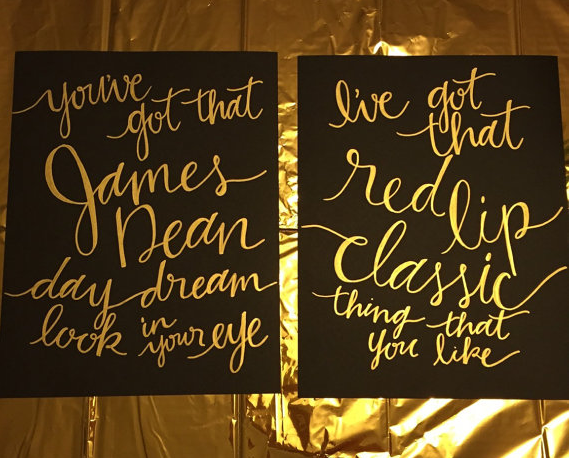 you've
got that
James
Dean
day dream
look in your eye
I've got
that
red
lip
classic
thing that
you like